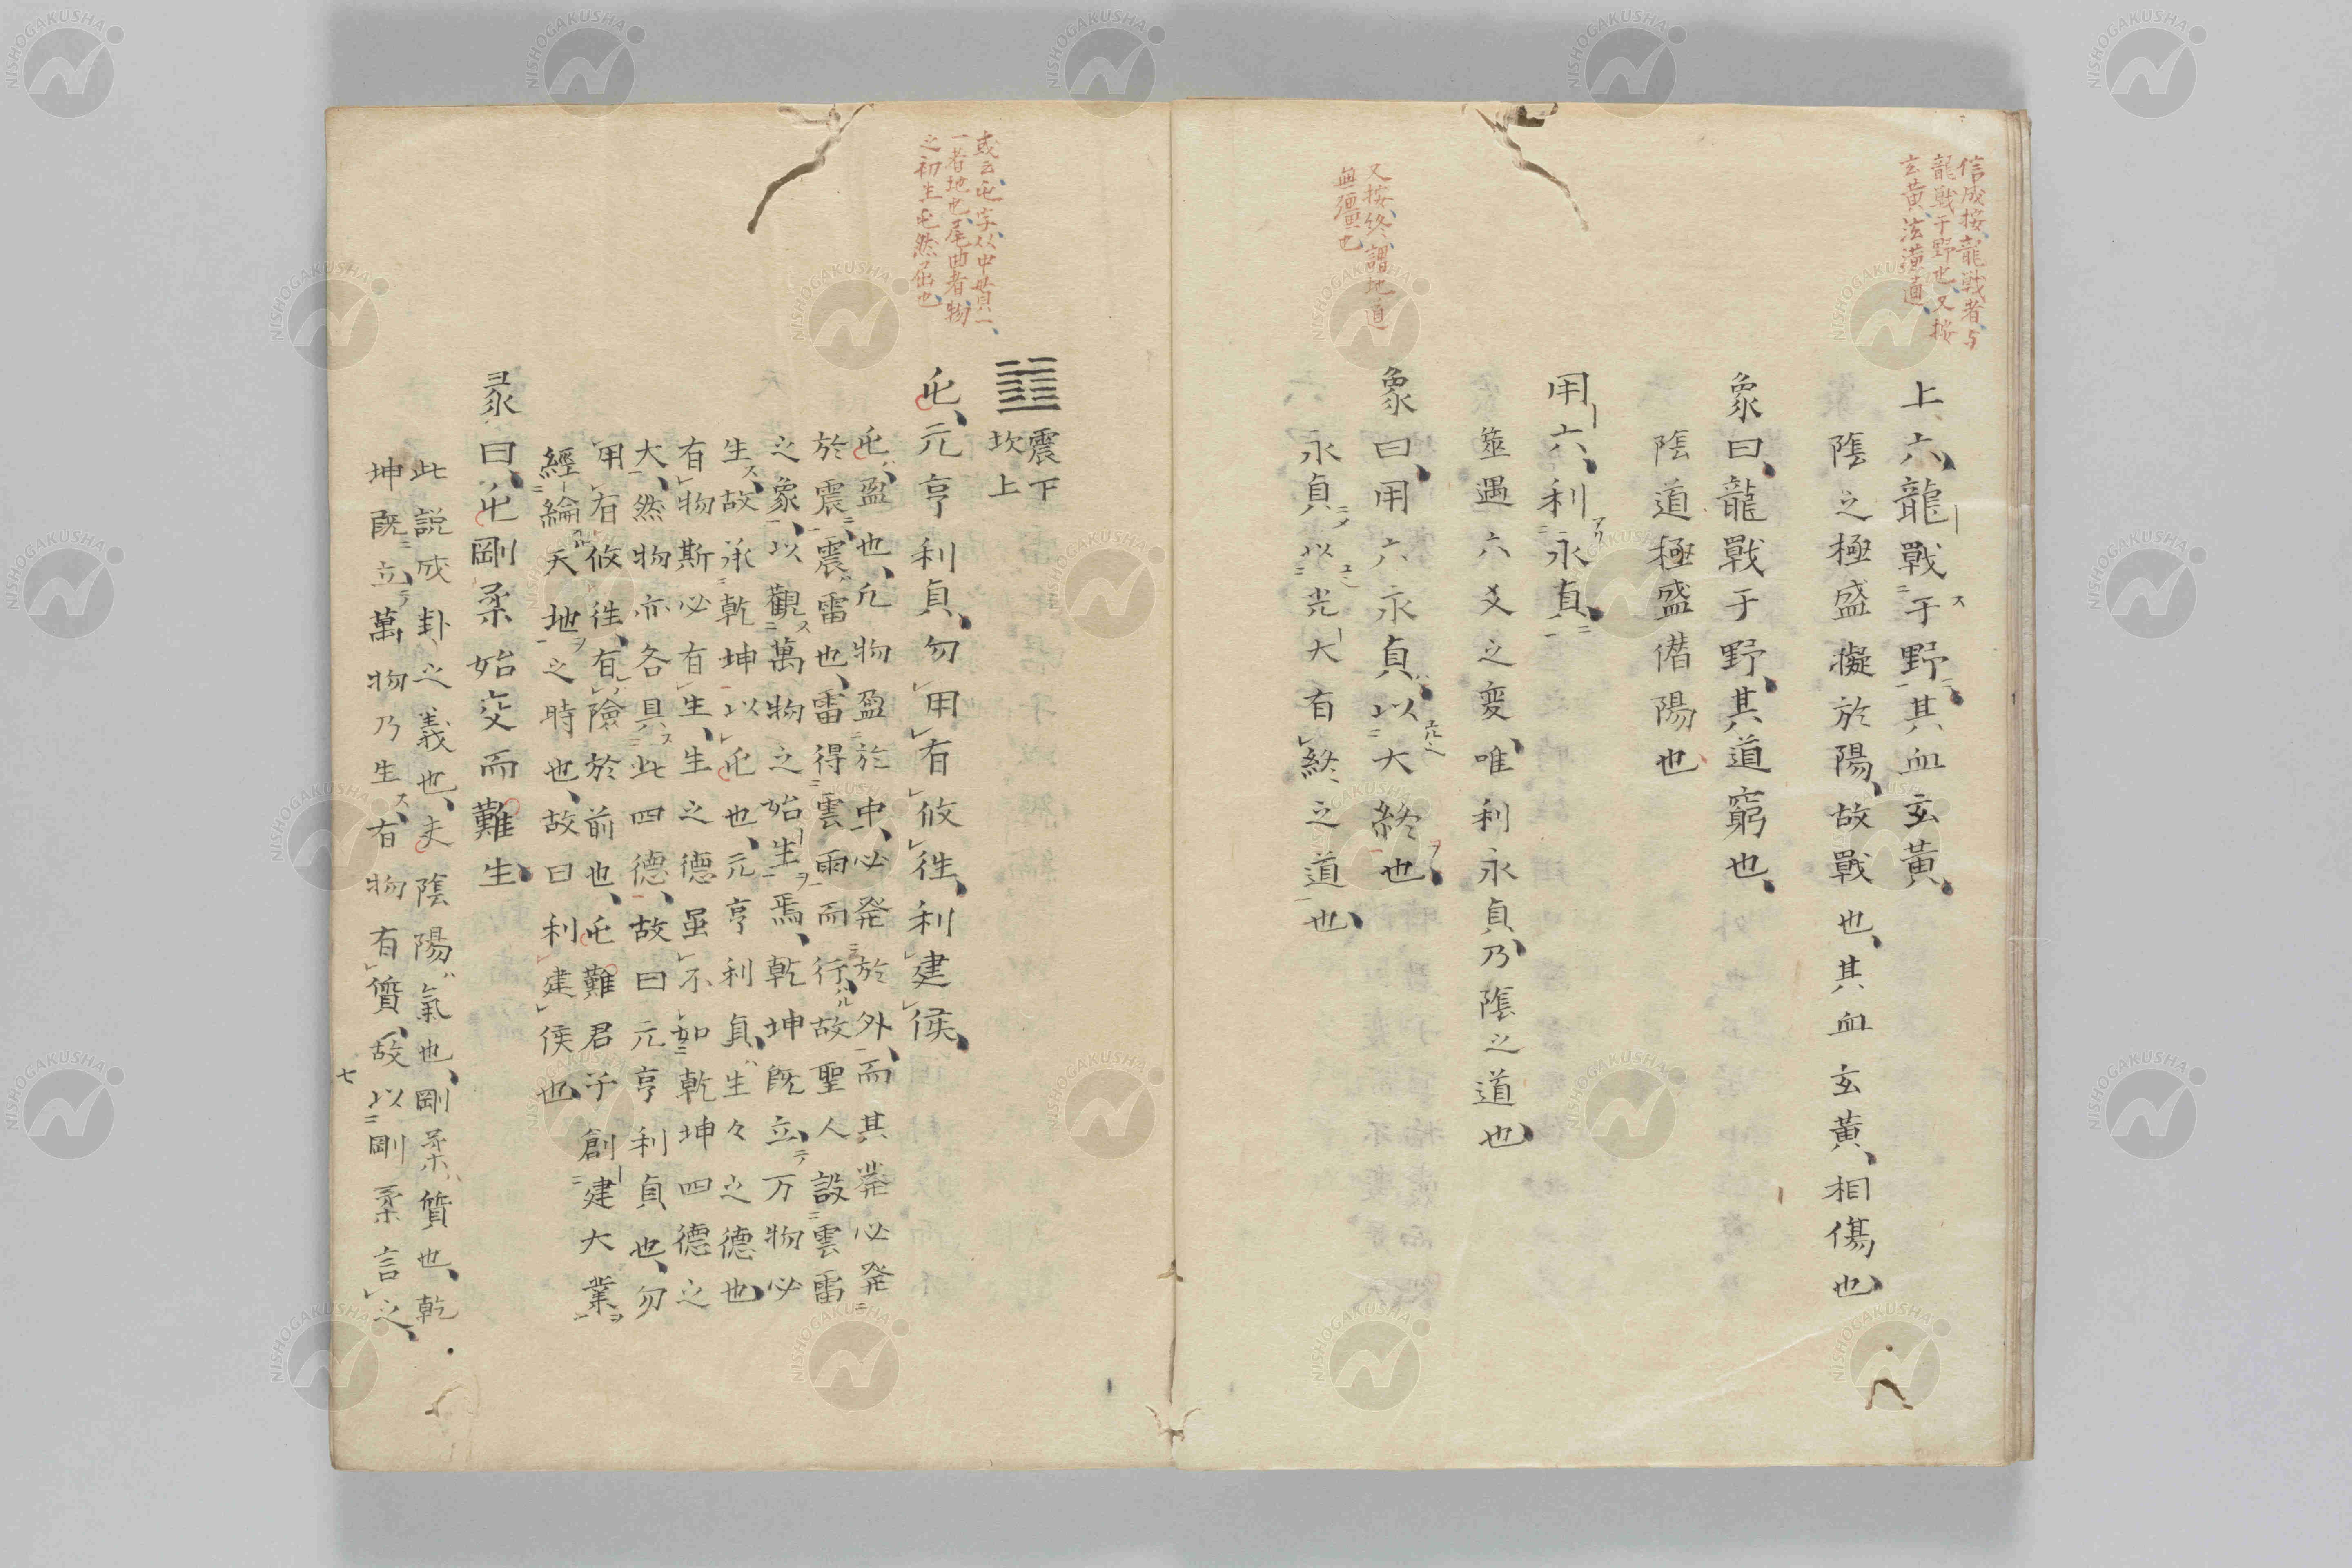 信成按、龍戦者、与
龍戦于野也、又按
玄黄、泫潢通、
上六、龍戰于野、其血玄黄、
陰之極盛凝於陽、故戰也、其血玄黄、相傷也、
象曰、龍戰于野、其道窮也、
陰道極盛僭陽也
用六、利永貞、
筮遇六爻之変、唯利永貞、乃陰之道也、
又按、終、謂地道
無疆也、
象曰、用六永貞、以大終也、
永貞以光大有終之道也、
或云、屯字、以屮貫一、
一者地也、尾曲者、物
之初生屯然屈也、
震下
坎上
屯、元亨利貞、勿用有攸徃、利建侯、
屯、盈也、凡物盈於中、必発於外、而其発必発
於震、震、雷也、雷得雲雨而行、故聖人設雲雷
之象、以觀萬物之始生焉、乾坤既立、万物必
生、故承乾坤以屯也、元亨利貞、生々之德也、
有物斯必有生、生之德虽不如乾坤四德之
大、然物亦各具此四德、故曰元亨利貞也、勿
用有攸徃、有險於前也、屯難君子創建大業
經綸天地之時也、故曰利建侯也、
彖曰、屯剛柔始交而難生、
此説成卦之義也、夫陰陽氣也、剛柔質也、乾
坤既立、萬物乃生、有物有質、故以剛柔言之、
七
NISHOGAKUSHA